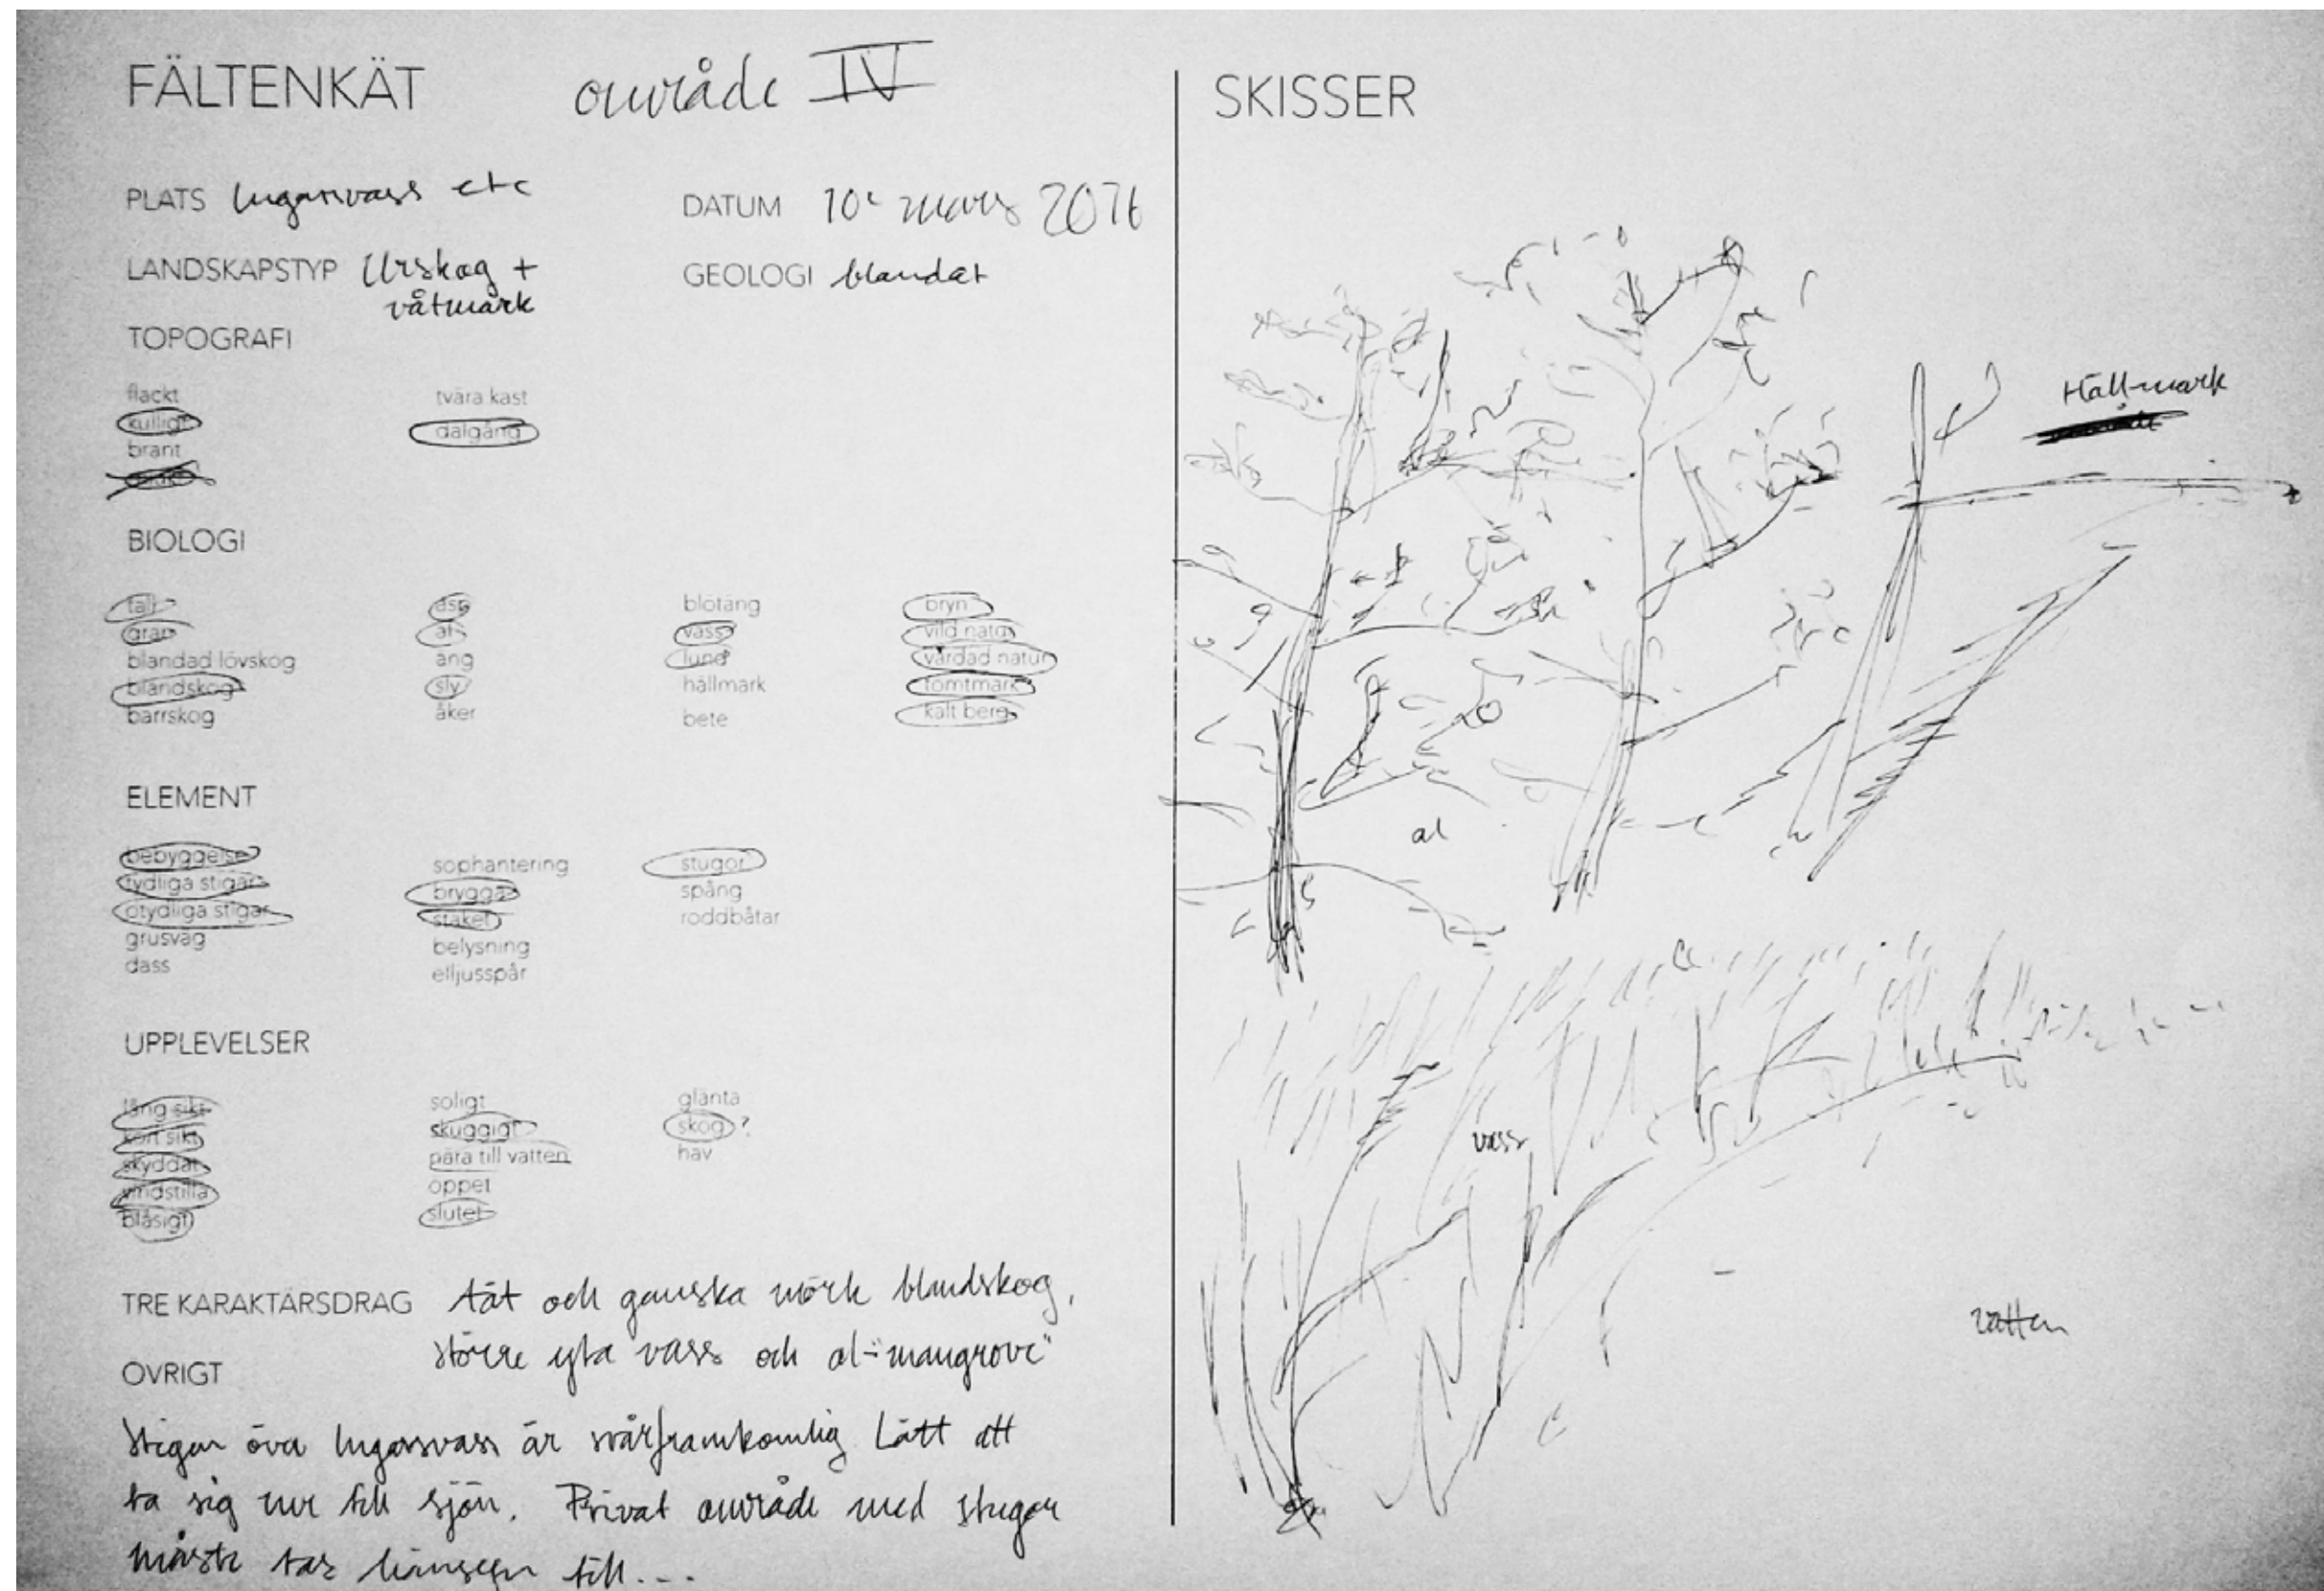 FÄLTENKÄT område IV
PLATS Lugarsvass etc
DATUM 10e mars 2016
LANDSKAPSTYP Urskog +
våtmark
GEOLOGI blandat
TOPOGRAFI
flackt
kulligt
brant
tvära kast
dalgång
BIOLOGI
tall
gran
blandad lövskog
blandskog
barrskog
asp
al
äng
sly
åker
blötäng
vass
lund
hällmark
bete
bryn
vild natur
vårdad natur
tomtmark
kalt berg
ELEMENT
bebyggelse
tydliga stigar
otydliga stigar
grusväg
dass
sophantering
brygga
staket
belysning
elljusspår
stugor
spång
roddbåtar
UPPLEVELSER
lång sikt
kort sikt
skyddat
vindstilla
blåsigt
soligt
skuggigt
nära till vatten
öppet
slutet
glänta
skog ?
hav
TRE KARAKTÄRSDRAG tät och ganska mörk blandskog,
större yta vass och al-"mangrove"
ÖVRIGT
Stigen över Lugarsvass är svårframkomlig Lätt att
ta sig ner till sjön. Privat område med stugor
måste tas hänsyn till...
SKISSER
Hällmark
al
vass
vatten